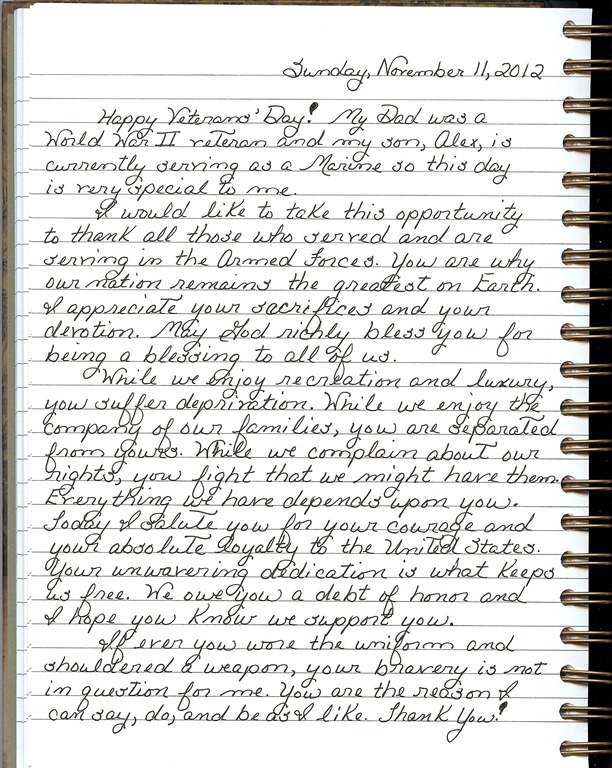 Sunday, November 11, 2012
Happy Veterans' Day! My Dad was a
World War II veteran and my son, Alex, is
currently serving as a Marine so this day
is very special to me.
I would like to take this opportunity
to thank all those who served and are
serving in the Armed Forces. You are why
our nation remains the greatest on Earth.
I appreciate your sacrifices and your
devotion. May God richly bless you for
being a blessing to all of us.
While we enjoy recreation and luxury,
you suffer deprivation. While we enjoy the
company of our families, you are separated
from yours. While we complain about our
rights, you fight that we might have them.
Everything we have depends upon you.
Today I salute you for your courage and
your absolute loyalty to the United States.
Your unwavering dedication is what keeps
us free. We owe you a debt of honor and
I hope you know we support you.
If ever you wore the uniform and
shouldered a weapon, your bravery is not
in question for me. You are the reason I
can say, do, and be as I like. Thank You!